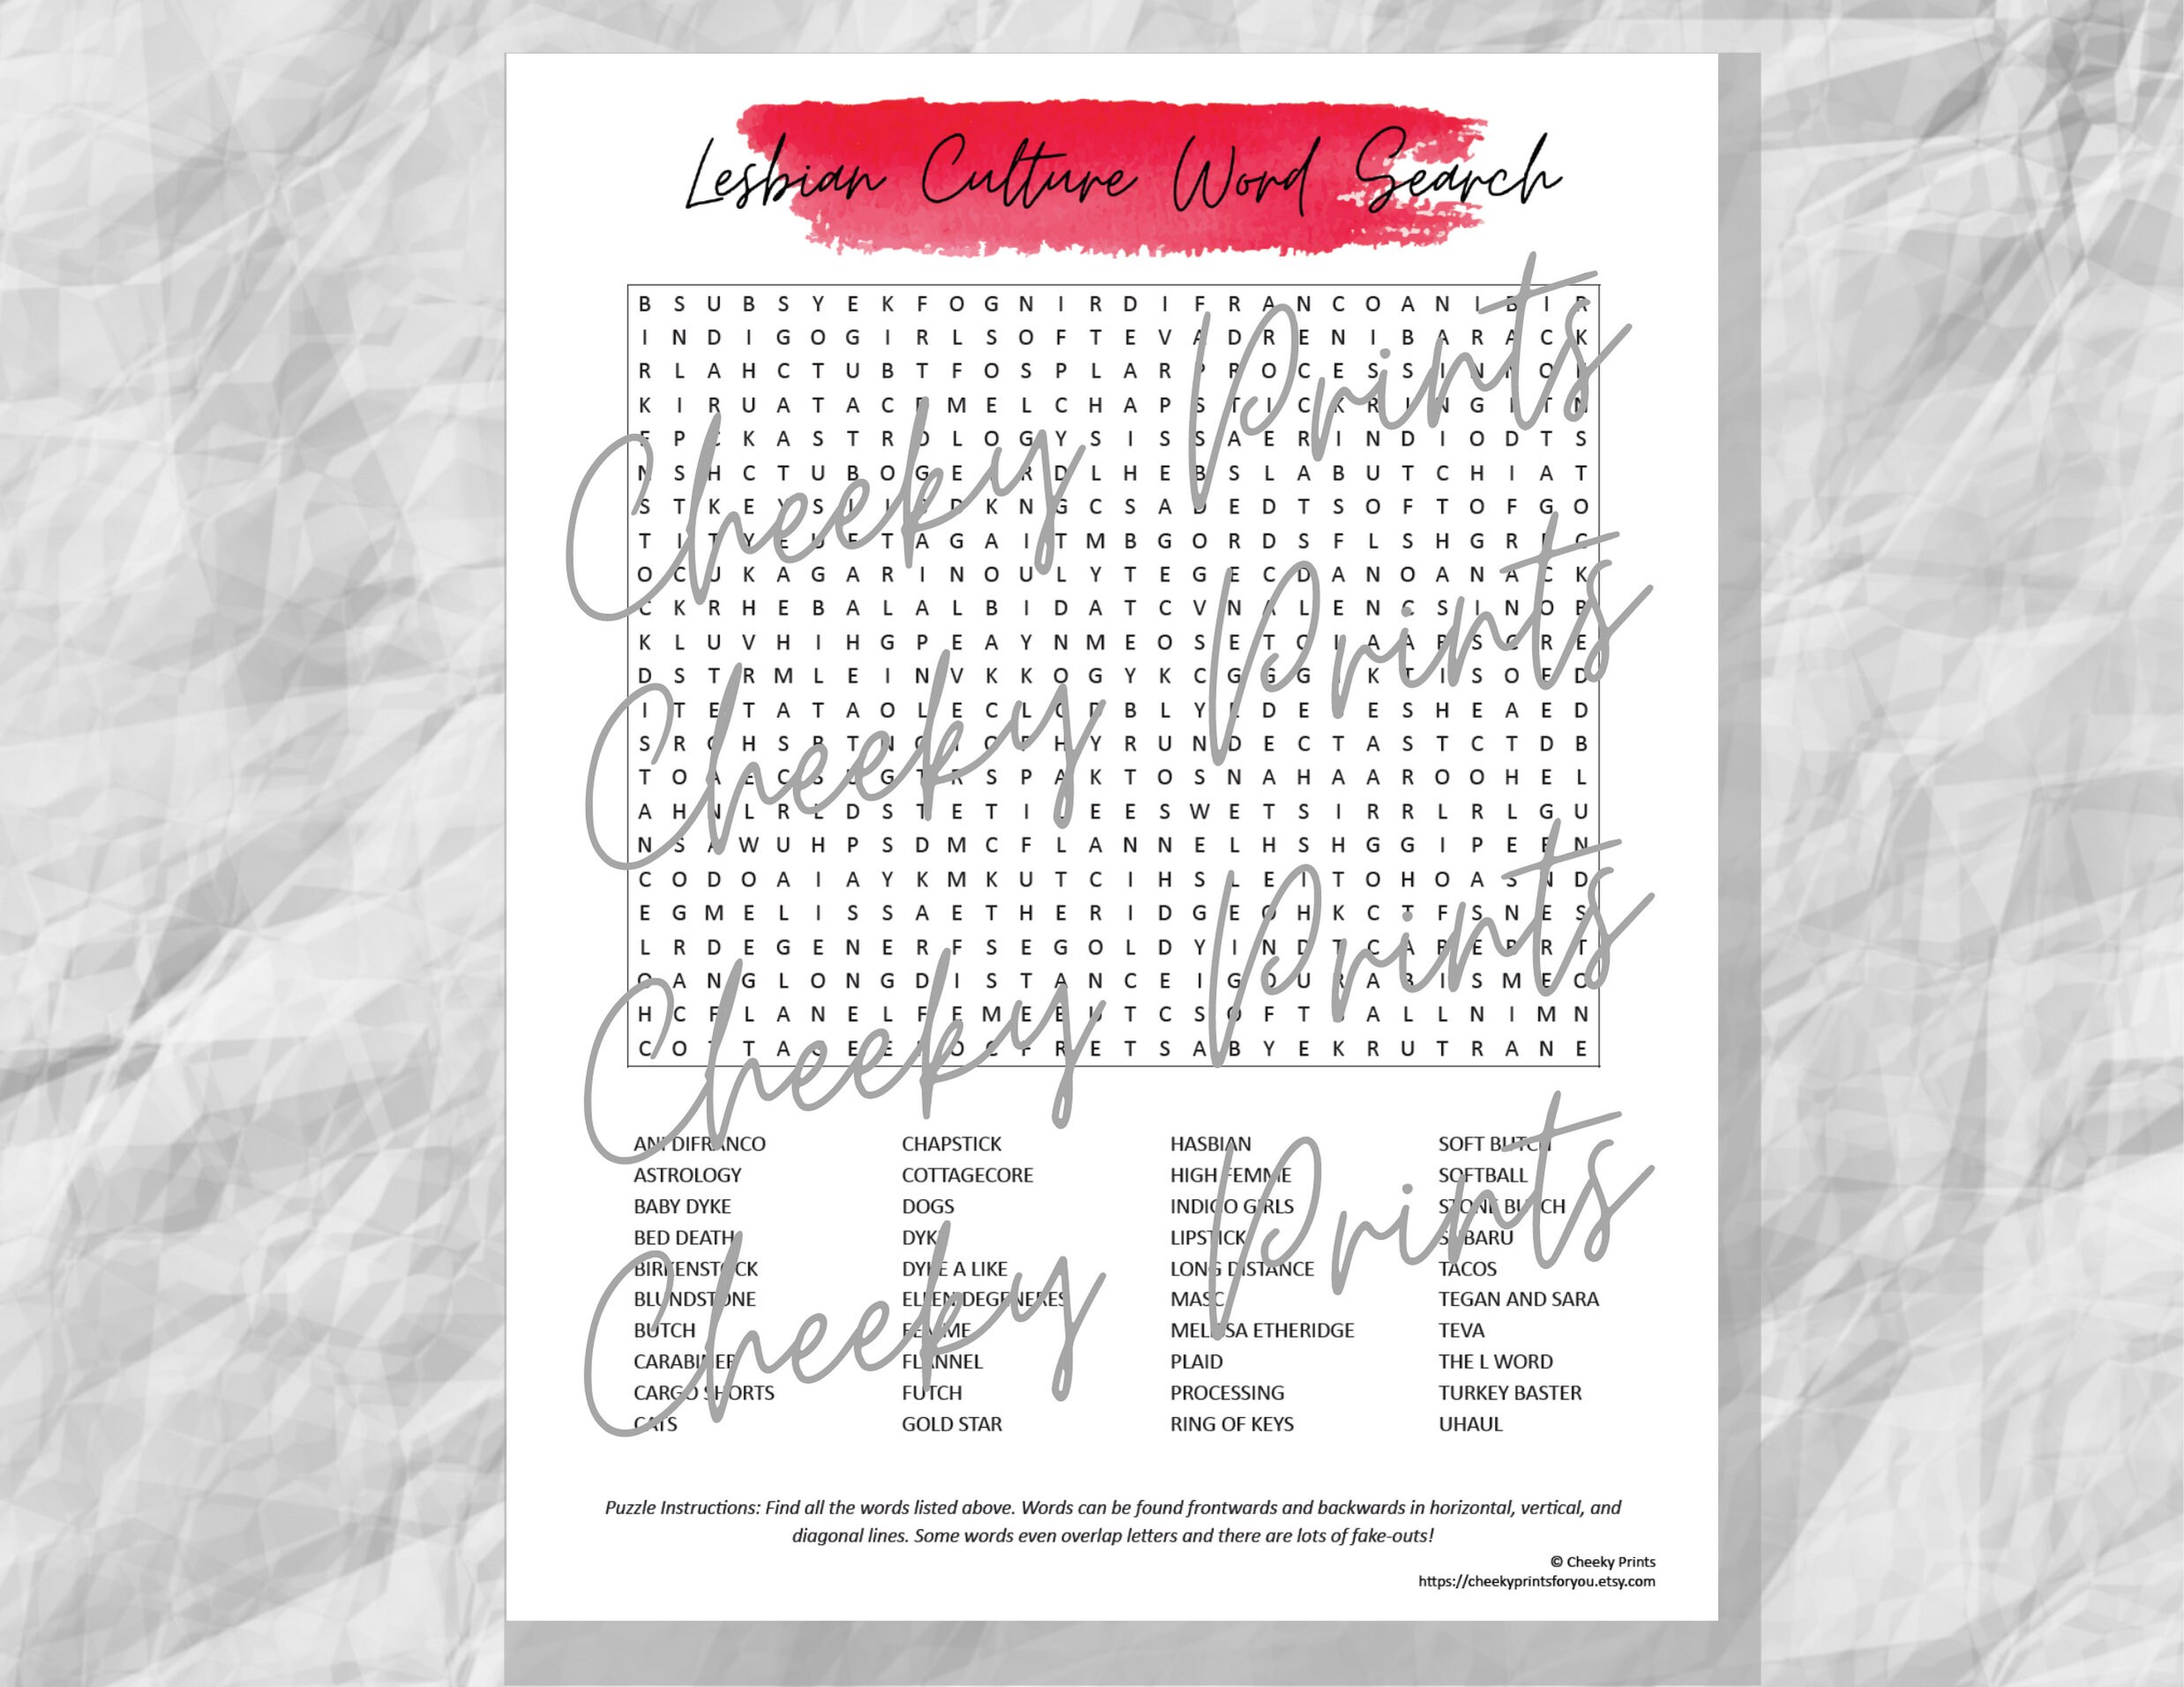 Lesbian Culture Word Search
B S U B S Y E K F O G N I R D I F R A N C O A N I B I R
I N D I G O G I R L S O F T E V A D R E N I B A R A C K
R L A H C T U B T F O S P L A R P R O C E S S I N O
K I R U A T A C M E L C H A P S T I C K R I N G T N
P K A S T R O L O G Y S I S S A E R I N D I O D T S
N S H C T U B O G E R D L H E B S L A B U T C H I A T
S T K E Y S D K N G C S A D E D T S O F T O F G O
T I T Y E T A G A I T M B G O R D S F L S H G R
O C U K A G A R I N O U L Y T E G E C D A N O A N A C K
C K R H E B A L A L B I D A T C V N A L E N C S I N O R
K L U V H I H G P E A Y N M E O S E T A A S R E
D S T R M L E I N V K K O G Y K C G G G K T I S O E D
I T E T A T A O L E C L B L Y D E E S H E A E D
S R H S T N H Y R U N D E C T A S T C T D B
T O A E C G R S P A K T O S N A H A A R O O H E L
A H N L R D S T E T I E E S W E T S I R R L R L G U
N S A W U H P S D M C F L A N N E L H S H G G I P E N
C O D O A I A Y K M K U T C I H S L E I T O H O A S N D
E G M E L I S S A E T H E R I D G E O H K C T F S N E S
L R D E G E N E R F S E G O L D Y I N D T C A E R T
O A N G L O N G D I S T A N C E I G O U R A B I S M E O
H C F L A N E L F E M E T C S O F T A L L N I M N
C O T A E E O R E T S A B Y E K R U T R A N E
Cheeky Prints
Cheeky Prints
Cheeky Prints
Cheeky Prints
ANI DIFRANCO CHAPSTICK HASBIAN SOFT BUTCH
ASTROLOGY COTTAGECORE HIGH FEMME SOFTBALL
BABY DYKE DOGS INDIGO GIRLS STONE BUTCH
BED DEATH DYKE LIPSTICK SUBARU
BIRKENSTOCK DYKE A LIKE LONG DISTANCE TACOS
BLUNDSTONE ELLEN DEGENERES MASC TEGAN AND SARA
BUTCH FEMME MELISSA ETHERIDGE TEVA
CARABINER FLANNEL PLAID THE L WORD
CARGO SHORTS FUTCH PROCESSING TURKEY BASTER
CATS GOLD STAR RING OF KEYS UHAUL
Puzzle Instructions: Find all the words listed above. Words can be found frontwards and backwards in horizontal, vertical, and
diagonal lines. Some words even overlap letters and there are lots of fake-outs!
© Cheeky Prints
https://cheekyprintsforyou.etsy.com